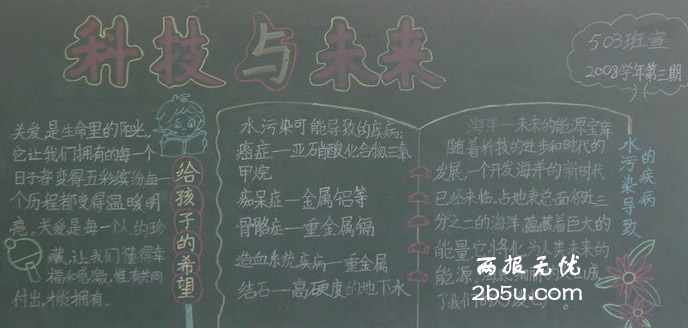 科技与未来
503班宣
2008学年第三期
关爱,是生命里的阳光,
它让我们拥有的每一个
日子都变得五彩缤纷每一
个历程都变得温暖明
亮。关爱是每一个人的珍
藏,让我们懂得幸
福和感激,惟有共同
付出,才能拥有.
给孩子的希望
水污染可能导致的疾病:
癌症—亚硝酸化合物三氯
甲烷
痴呆症—金属铝等
骨骼症—重金属镉
造血系统疾病—重金属
结石—高硬度的地下水
海洋—未来的能源宝库
随着科技的进步和时代的
发展,一个开发海洋的新时代
已经来临,占地球总面积近三
分之二的海洋,蕴藏着巨大的
能量,它将化为人生未来的
能源
了我们
水污染导致
的疾病
两报无忧
2b5u.com